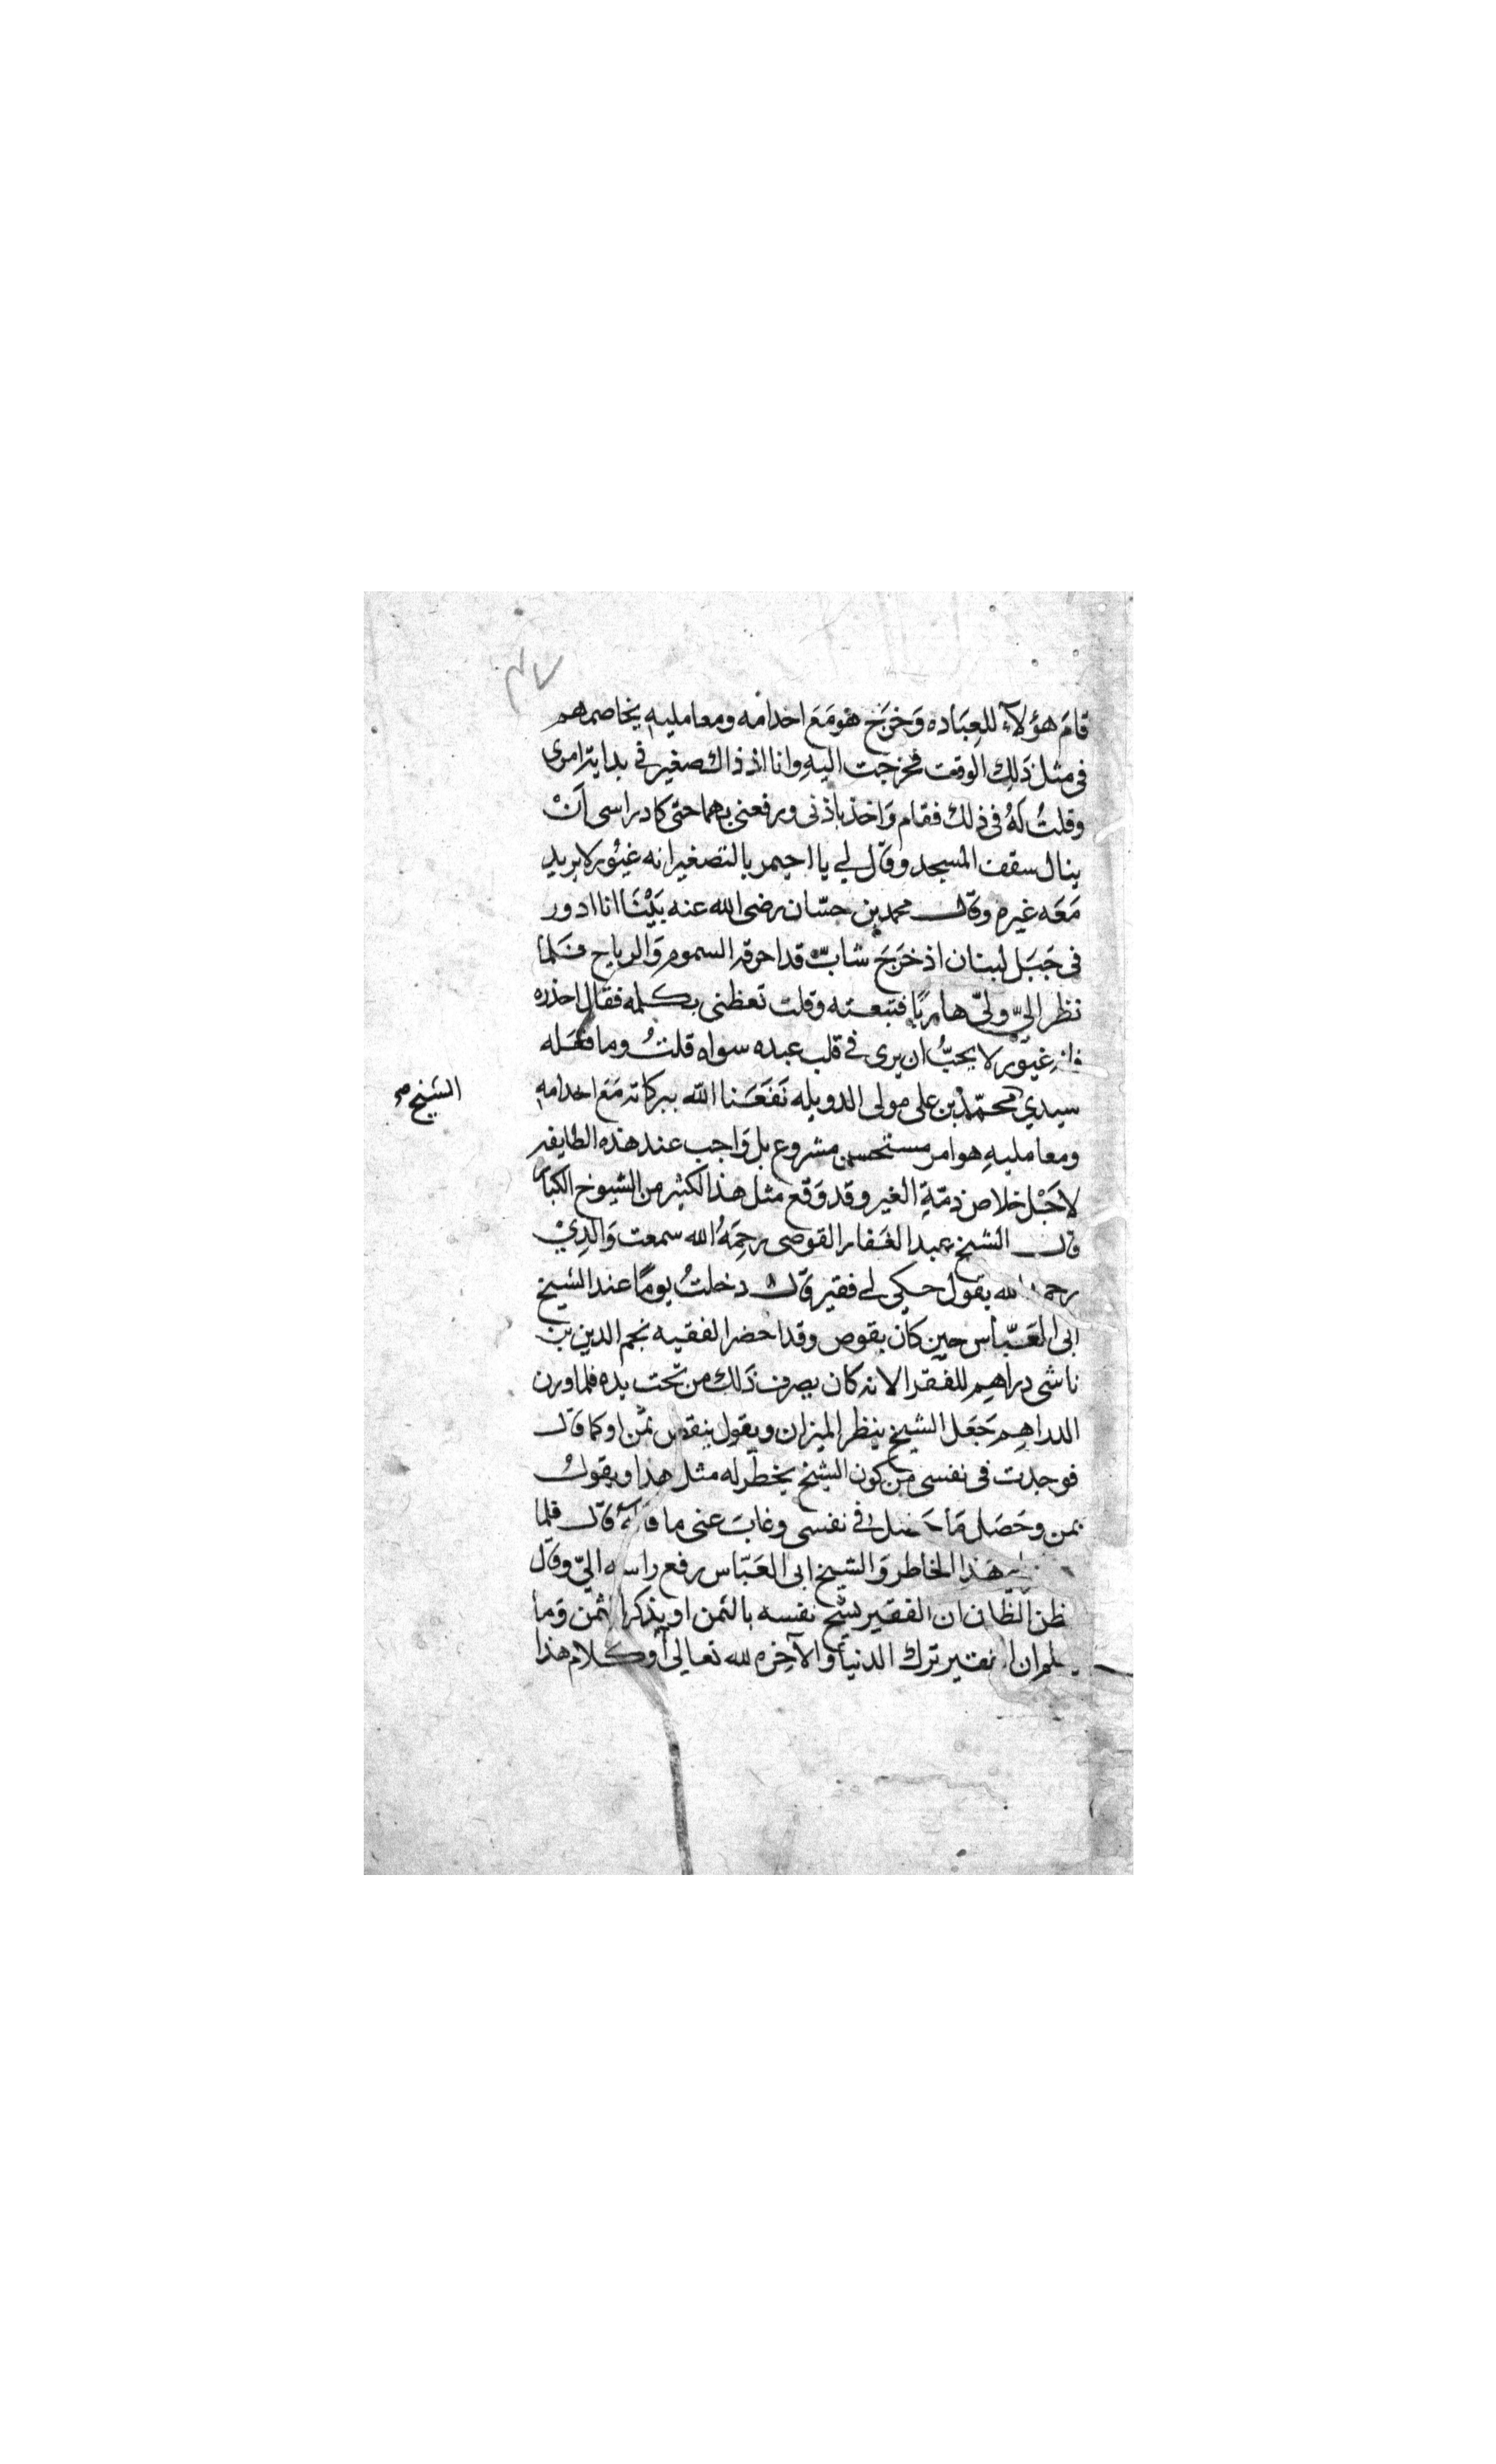 ٣٧
قامَ هؤلآء للعِبَاده وَخرَجَ هو مَعَ اخدامه ومعامليهِ يخاصمهم
فى مثل ذَلِكَ الوقت فخرجت اليهِ وانا اذ ذاك صغير فى بداية امرى
وقلتُ لَهُ فى ذلك فقام وَاخذ باذنى ورفعنى بهما حتى كاد راسى اَنْ
ينال سقف المسجد وقَال لى يا احيمر بالتصغير انه غيُور لا يريد
مَعَه غيره وقَال محمد بن حسّان رضى الله عنه بَيْنَا انا ادور
فى جَبَل لبنان اذ خرَجَ شابّ قد احرقه السموم وَالرياح فَلما
نظر اليّ ولىّ هاربًا فتبعته وقلت تعظنى بكلمه فقال احذره
فانه غيوْر لا يحبُّ ان يرى فى قلب عبده سواه قلتُ وما فعَله
سيدي محمّد بن على مولى الدويله نَفَعَنا الله ببركاته مَعَ اخدامهِ
الشيخ صح
ومعامليهِ هو امر مستحسن مشروع بل وَاجب عند هذه الطايفه
لاجَل خلاص ذمّةِ الغير وقد وَقع مثل هذا لكثير من الشيوخ الكبار
قال الشيخ عبد الغَفار القوصى رحِمَهُ الله سمعت وَالدِيْ
رحمه الله يقول حكى لى فقير قَال دخلتُ يومًا عند الشيخ
ابى العَبّاس حين كان بقوص وقد احضر الفقيه نجم الدين بن
ناشى دراهم للفقرا لانه كان يصرف ذَلك من تحت يده فلما وزن
الدراهِم جَعَل الشيخ ينظر الميزان ويقول ينقص ثمن او كما قَال
فوجدت فى نفسى من كون الشيخ يخطر له مثل هذا ويقول
ثمن وحَصَل مَا حَصَل فى نفسى وغابَ عنى ما قَاله قَال فلما
هَذا الخاطر وَالشيخ ابى العَبّاس رفع راسه اليّ وقَال
ظن الظّان ان الفقير يشّح نفسه بالثمن او يذكر الثمن وَما
يعلم ان الفقير ترك الدنيا وَالآخِره لله تعالى أوَ كلام هذا